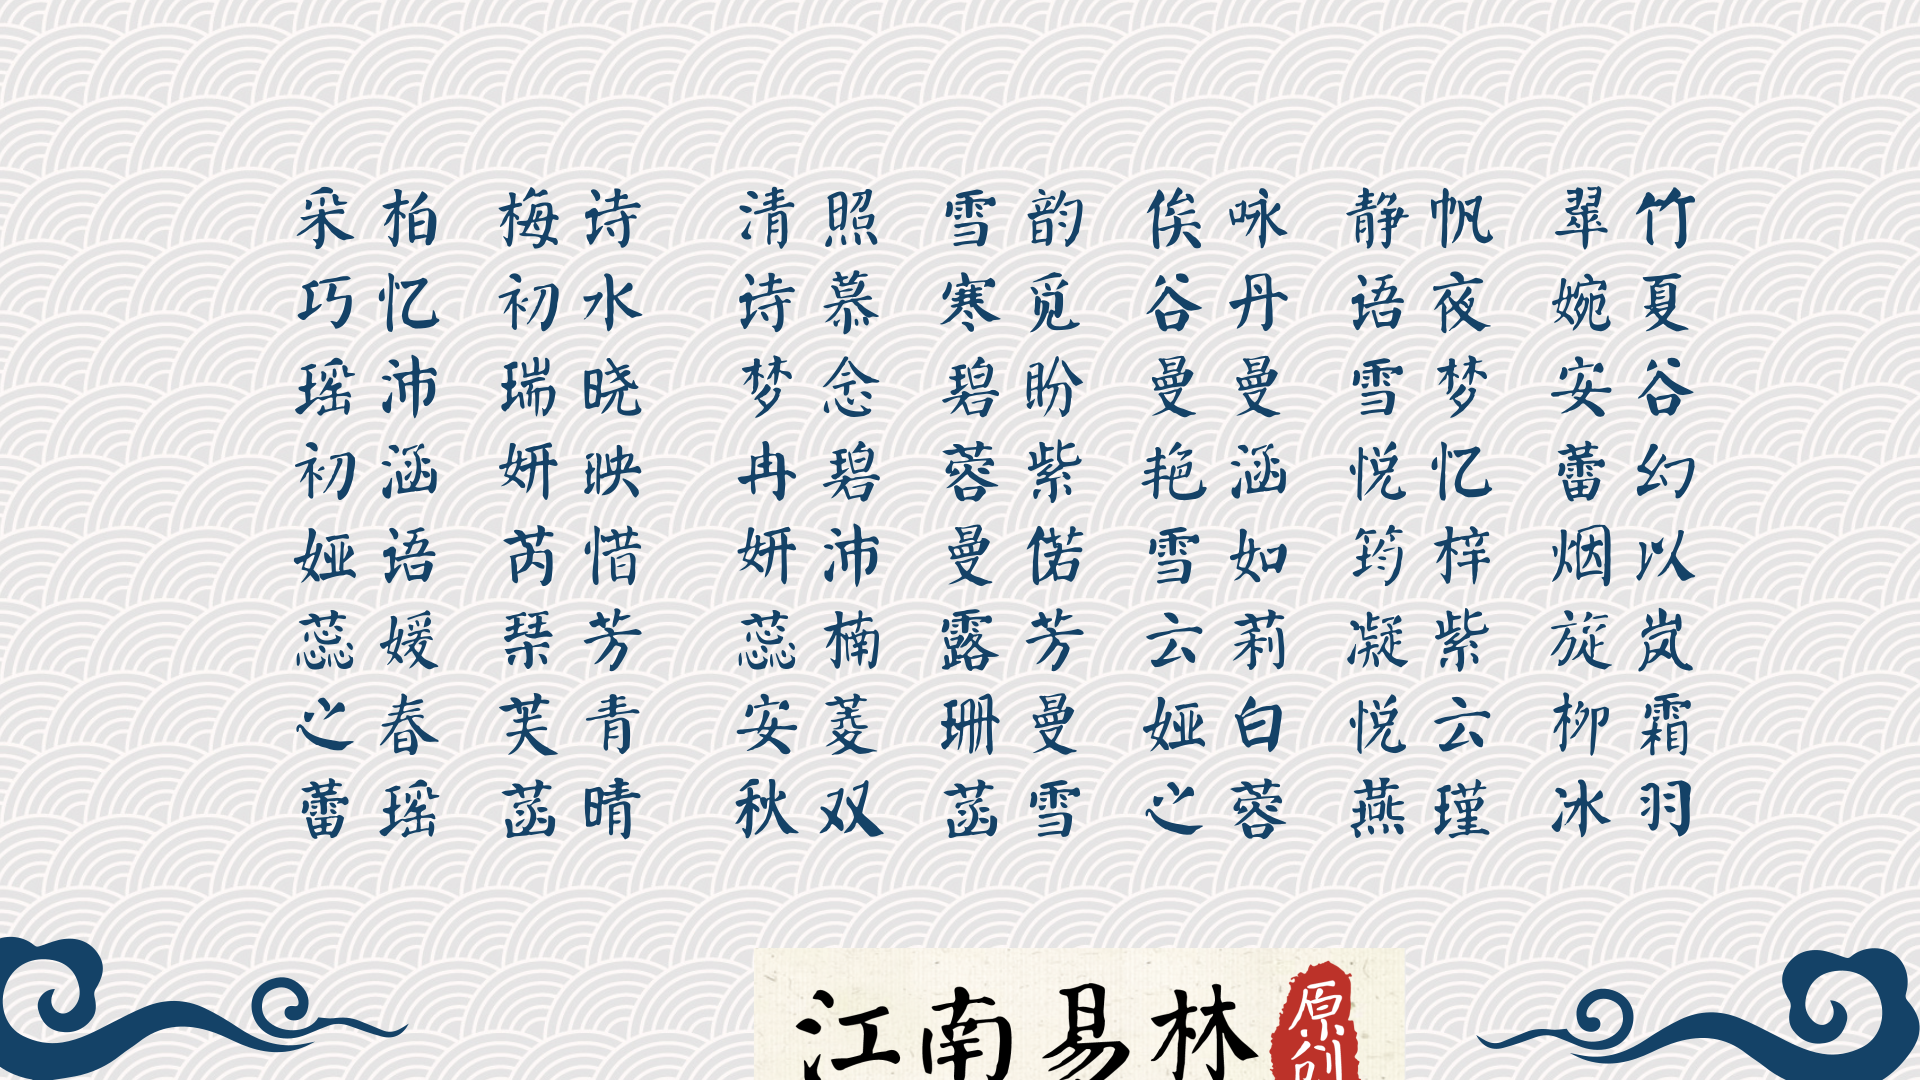 采柏 梅诗 清照 雪韵 俟咏 静帆 翠竹
巧忆 初水 诗慕 寒觅 谷丹 语夜 婉夏
瑶沛 瑞晓 梦念 碧盼 曼曼 雪梦 安谷
初涵 妍映 冉碧 蓉紫 艳涵 悦忆 蕾幻
娅语 芮惜 妍沛 曼偌 雪如 筠梓 烟以
蕊媛 琹芳 蕊楠 露芳 云莉 凝紫 旋岚
之春 芙青 安菱 珊曼 娅白 悦云 柳霜
蕾瑶 菡晴 秋双 菡雪 之蓉 燕瑾 冰羽
江南易林
原创